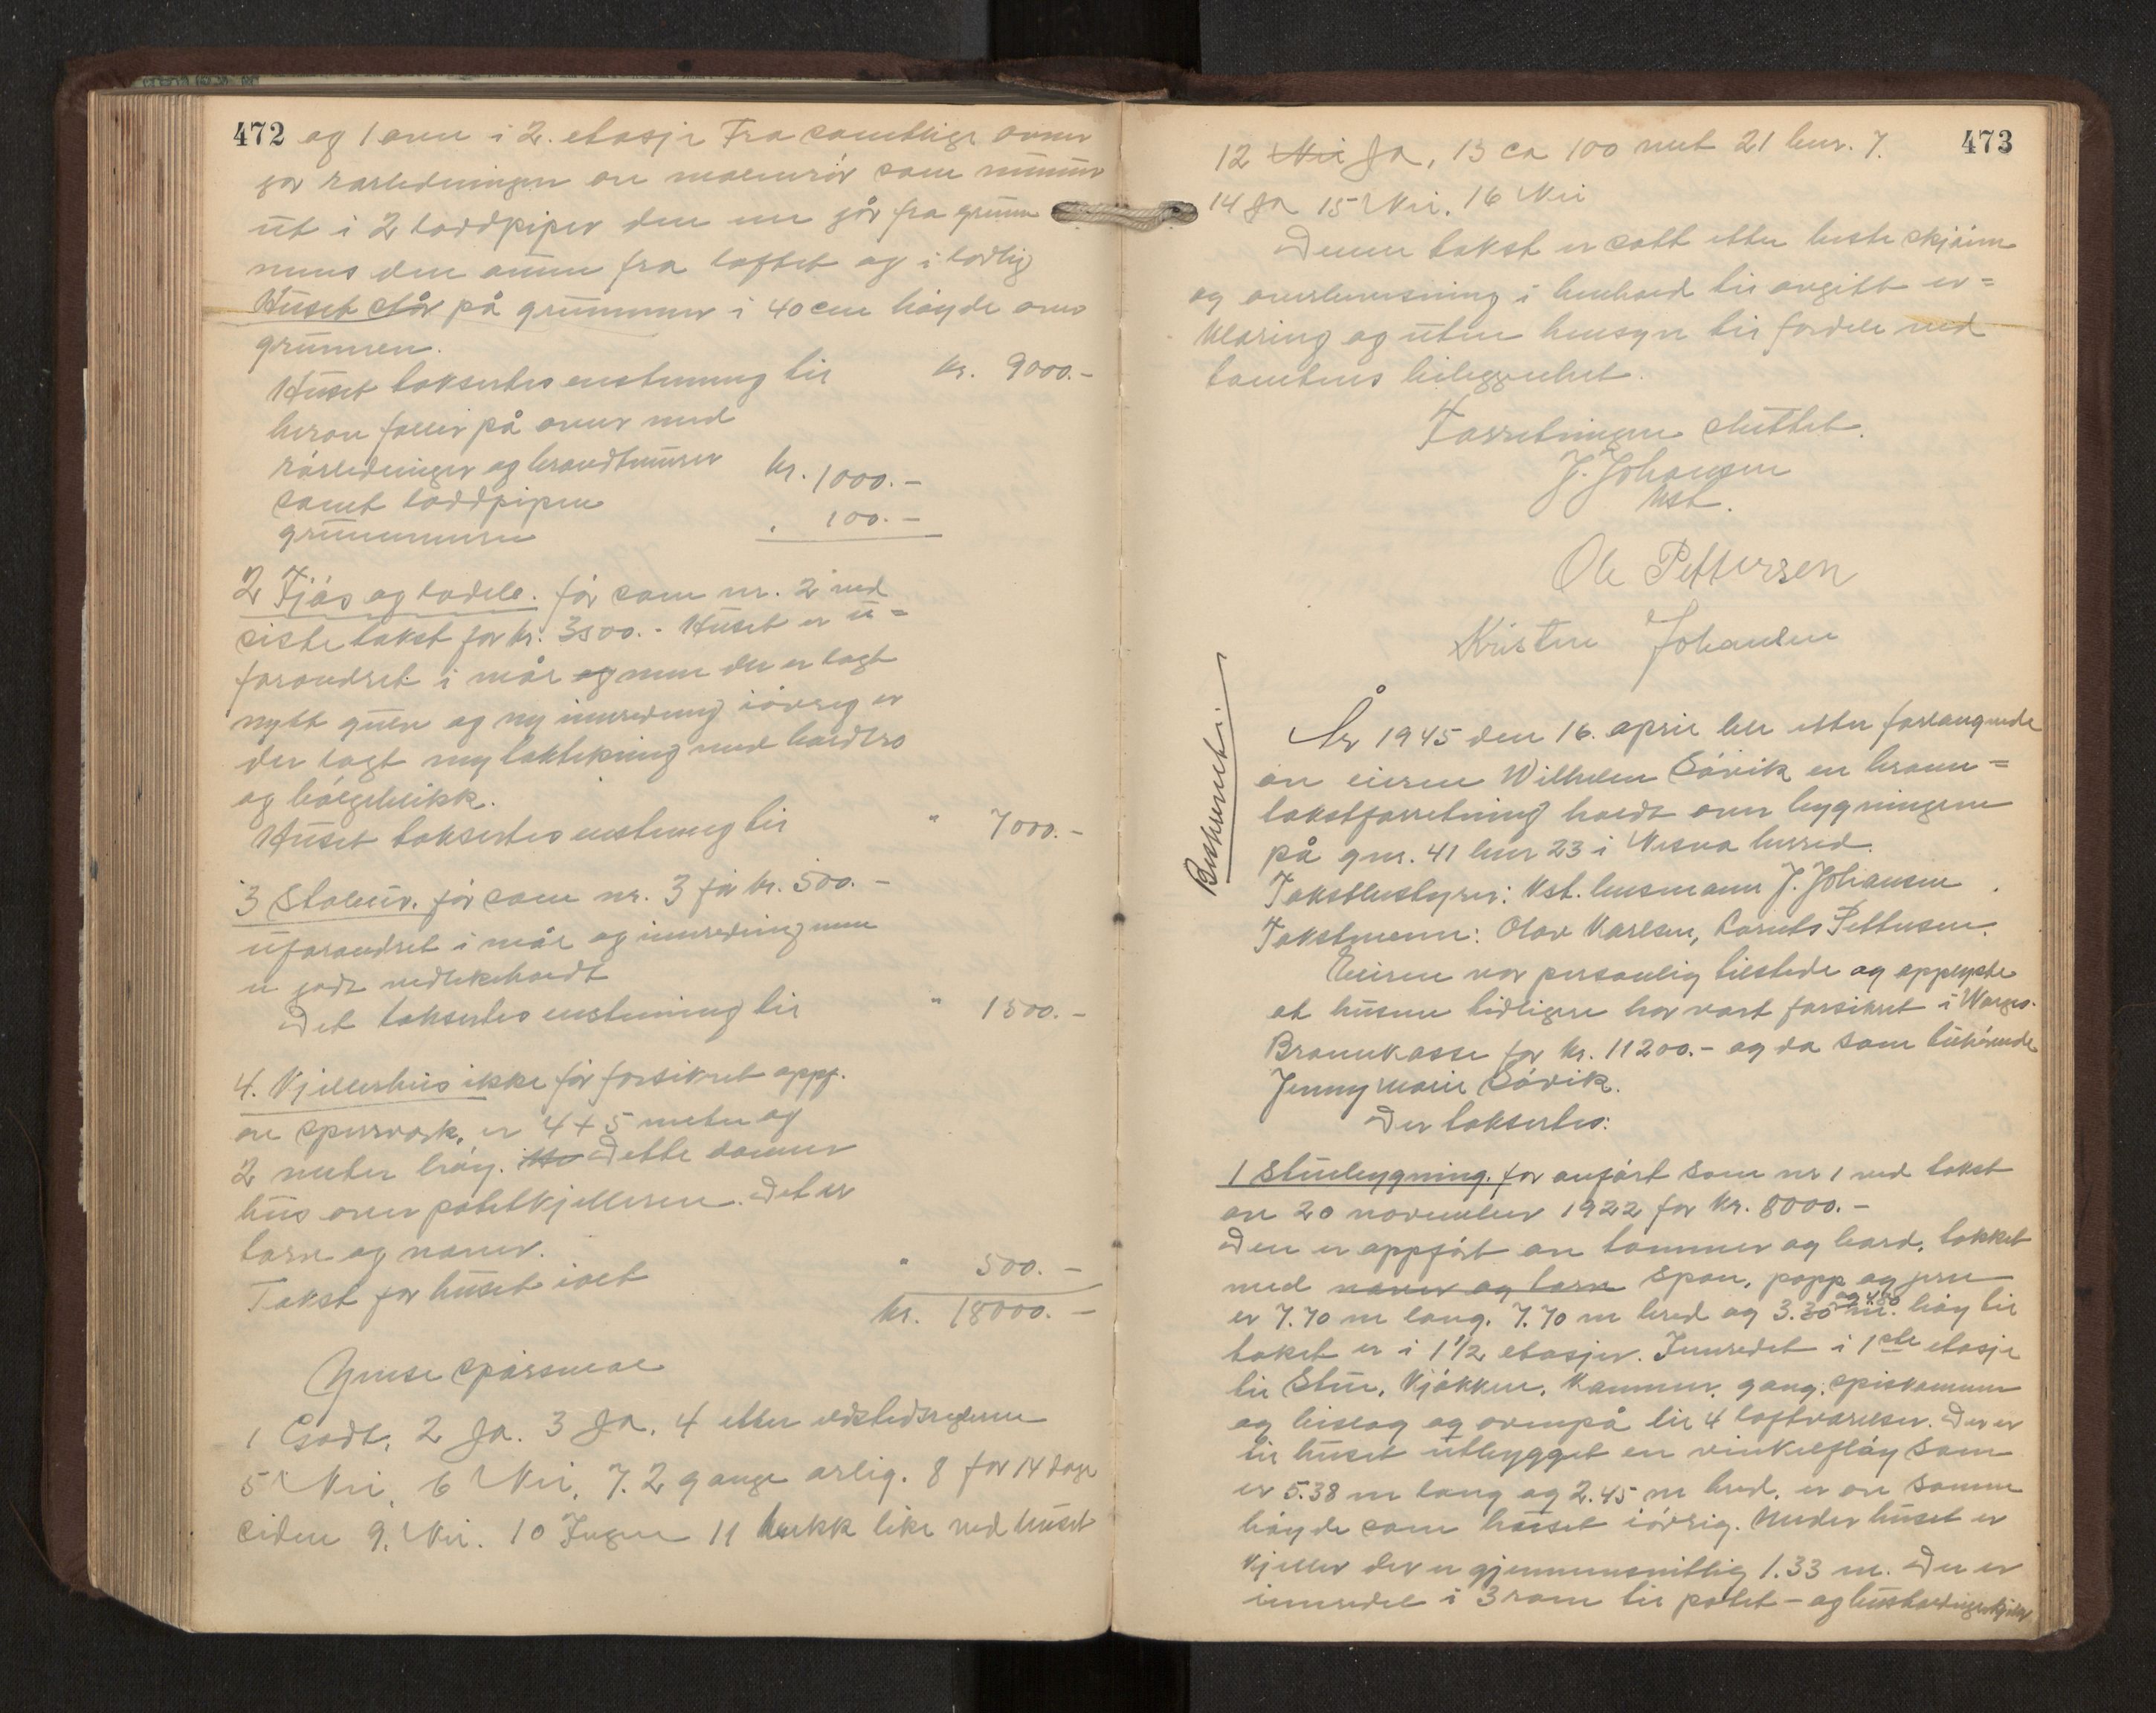 472 og 1 ovn i 2. etasje Fra samtlige ovner
går rørledningen av malmrør som munner
ut i 2 loddpiper den ene går fra grunn
muns den annen fra loftet og i lovlig
Huset står på grunnmur i 40 cm høyde over
grunnen.
Huset takseres enstemmig til kr. 9000.-
herav faller på ovner med
rørledninger og brandtmurer
samt loddpipen kr. 1000.-
grunnmuren " 100.-
2 Fjøs og lade. før som nr. 2 ved
siste takst for kr. 3500.- Huset er u=
forandret i mål og men der er lagt
nytt gulv og ny innredning iøvrig er
der lagt ny taktekning med bordtro
og bølgeblikk.
Huset takseres enstemmig til " 7000.-
3 Stabur. før som nr. 3 før kr. 500.-
uforandret i mål og innredning men
er godt vedlikeholdt
Det takseres enstemmig til " 1500.-
4. Kjellerhus ikke før forsikret oppf.
av sperrverk, er 4 + 5 meter og
2 meter høy. Dette danner
hus over potetkjelleren. Det er
torv og never.
Takst for huset ialt " 500.-
kr. 18000.-
Ymse spørsmål
1 Godt, 2 Ja. 3 Ja, 4 etter ildstedsreglerne
5 Nei, 6 Nei, 7. 2 gange årlig. 8 for 14 dage
siden 9. Nei. 10 Ingen 11 bekk like ved huset
473
12 Nei Ja, 13 ca 100 met 21 bnr. 7.
14 Ja 15 Nei. 16 Nei
Denne takst er satt etter beste skjønn
og overbevisning i henhold til avgitt er=
klæring og uten hensyn til fordele ved
tomtens beliggenhet.
Forretningen sluttet.
J. Johansen
Kst.
Ole Pettersen
Kristen Johansen
Beskrevet:
År 1945 den 16. april ble etter forlangende
av eieren Wilhelm Søvik en brann=
takstforretning holdt over bygningene
på gnr. 41 bnr 23 i Nesna herred.
Takstbestyrer: Kst. lensmann J. Johansen.
Takstmenn: Olav Karlsen, Lorents Pettersen.
Eieren var personlig tilstede og opplyste
at husene tidligere har vært forsikret i Norges
Brannkasse for kr. 11200.- og da som tilhørende
Jenny Marie Søvik.
Der takseres:
1 Stuebygning. før anført som nr 1 ved takst
av 20 november 1922 for kr. 8000.-
Den er oppført av tømmer og bord, tekket
med never og torv spon, papp og jern
er 7.70 m lang. 7.70 m bred og 3.30 og 4.50 m. høy til
taket er i 1 1/2 etasjer. Innredet i 1ste etasje
til Stue, Kjøkken, Kammer, gang, spiskammer
og bislag og ovenpå til 4 loftværelser. Der er
til huset utbygget en vinkelfløy som
er 5.38 m lang og 2.45 m bred, er av samme
høyde som huset iøvrig. Under huset er
kjeller der er gjennomsnittlig 1.33 m. Den er
innredet i 3 rom til potet- og husholdningskjeller